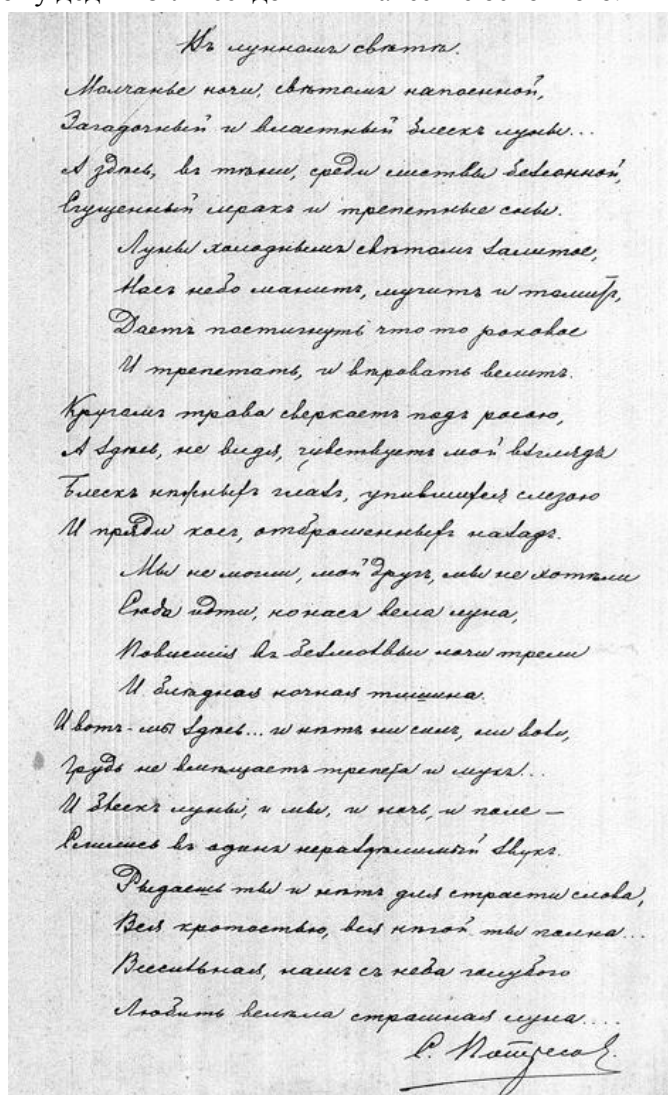 Въ лунномъ свѣтѣ.
Молчанье ночи, свѣтомъ напоенной,
Загадочный и властный блескъ луны...
А здѣсь, въ тѣни, среди листвы безсонной,
Сгущенный мракъ и трепетные сны.
Луны холоднымъ свѣтомъ залитое,
Насъ небо манитъ, мучитъ и томитъ,
Даетъ постигнуть что то роковое
И трепетать, и вѣровать велитъ.
Кругомъ трава сверкаетъ подъ росою,
А здѣсь, не видя, чувствуетъ мой взглядъ
Блескъ нѣжныхъ глазъ, упившихся слезою
И пряди косъ, отброшенныхъ назадъ.
Мы не могли, мой другъ, мы не хотѣли
Сюда идти, но насъ вела луна,
Повисшія въ безмолвьи ночи трели
И блѣдная ночная тишина.
И вотъ - мы здѣсь... и нѣтъ ни силъ, ни воли,
Грудь не вмѣщаетъ трепета и мукъ...
И блескъ луны, и мы, и ночь, и поле —
Слились въ одинъ нераздѣлимый звукъ.
Рыдаешь ты и нѣтъ для страсти слова,
Вся кротостью, вся нѣгой ты полна...
Всесильная, намъ съ неба голубого
Любить велѣла страшная луна....
С.